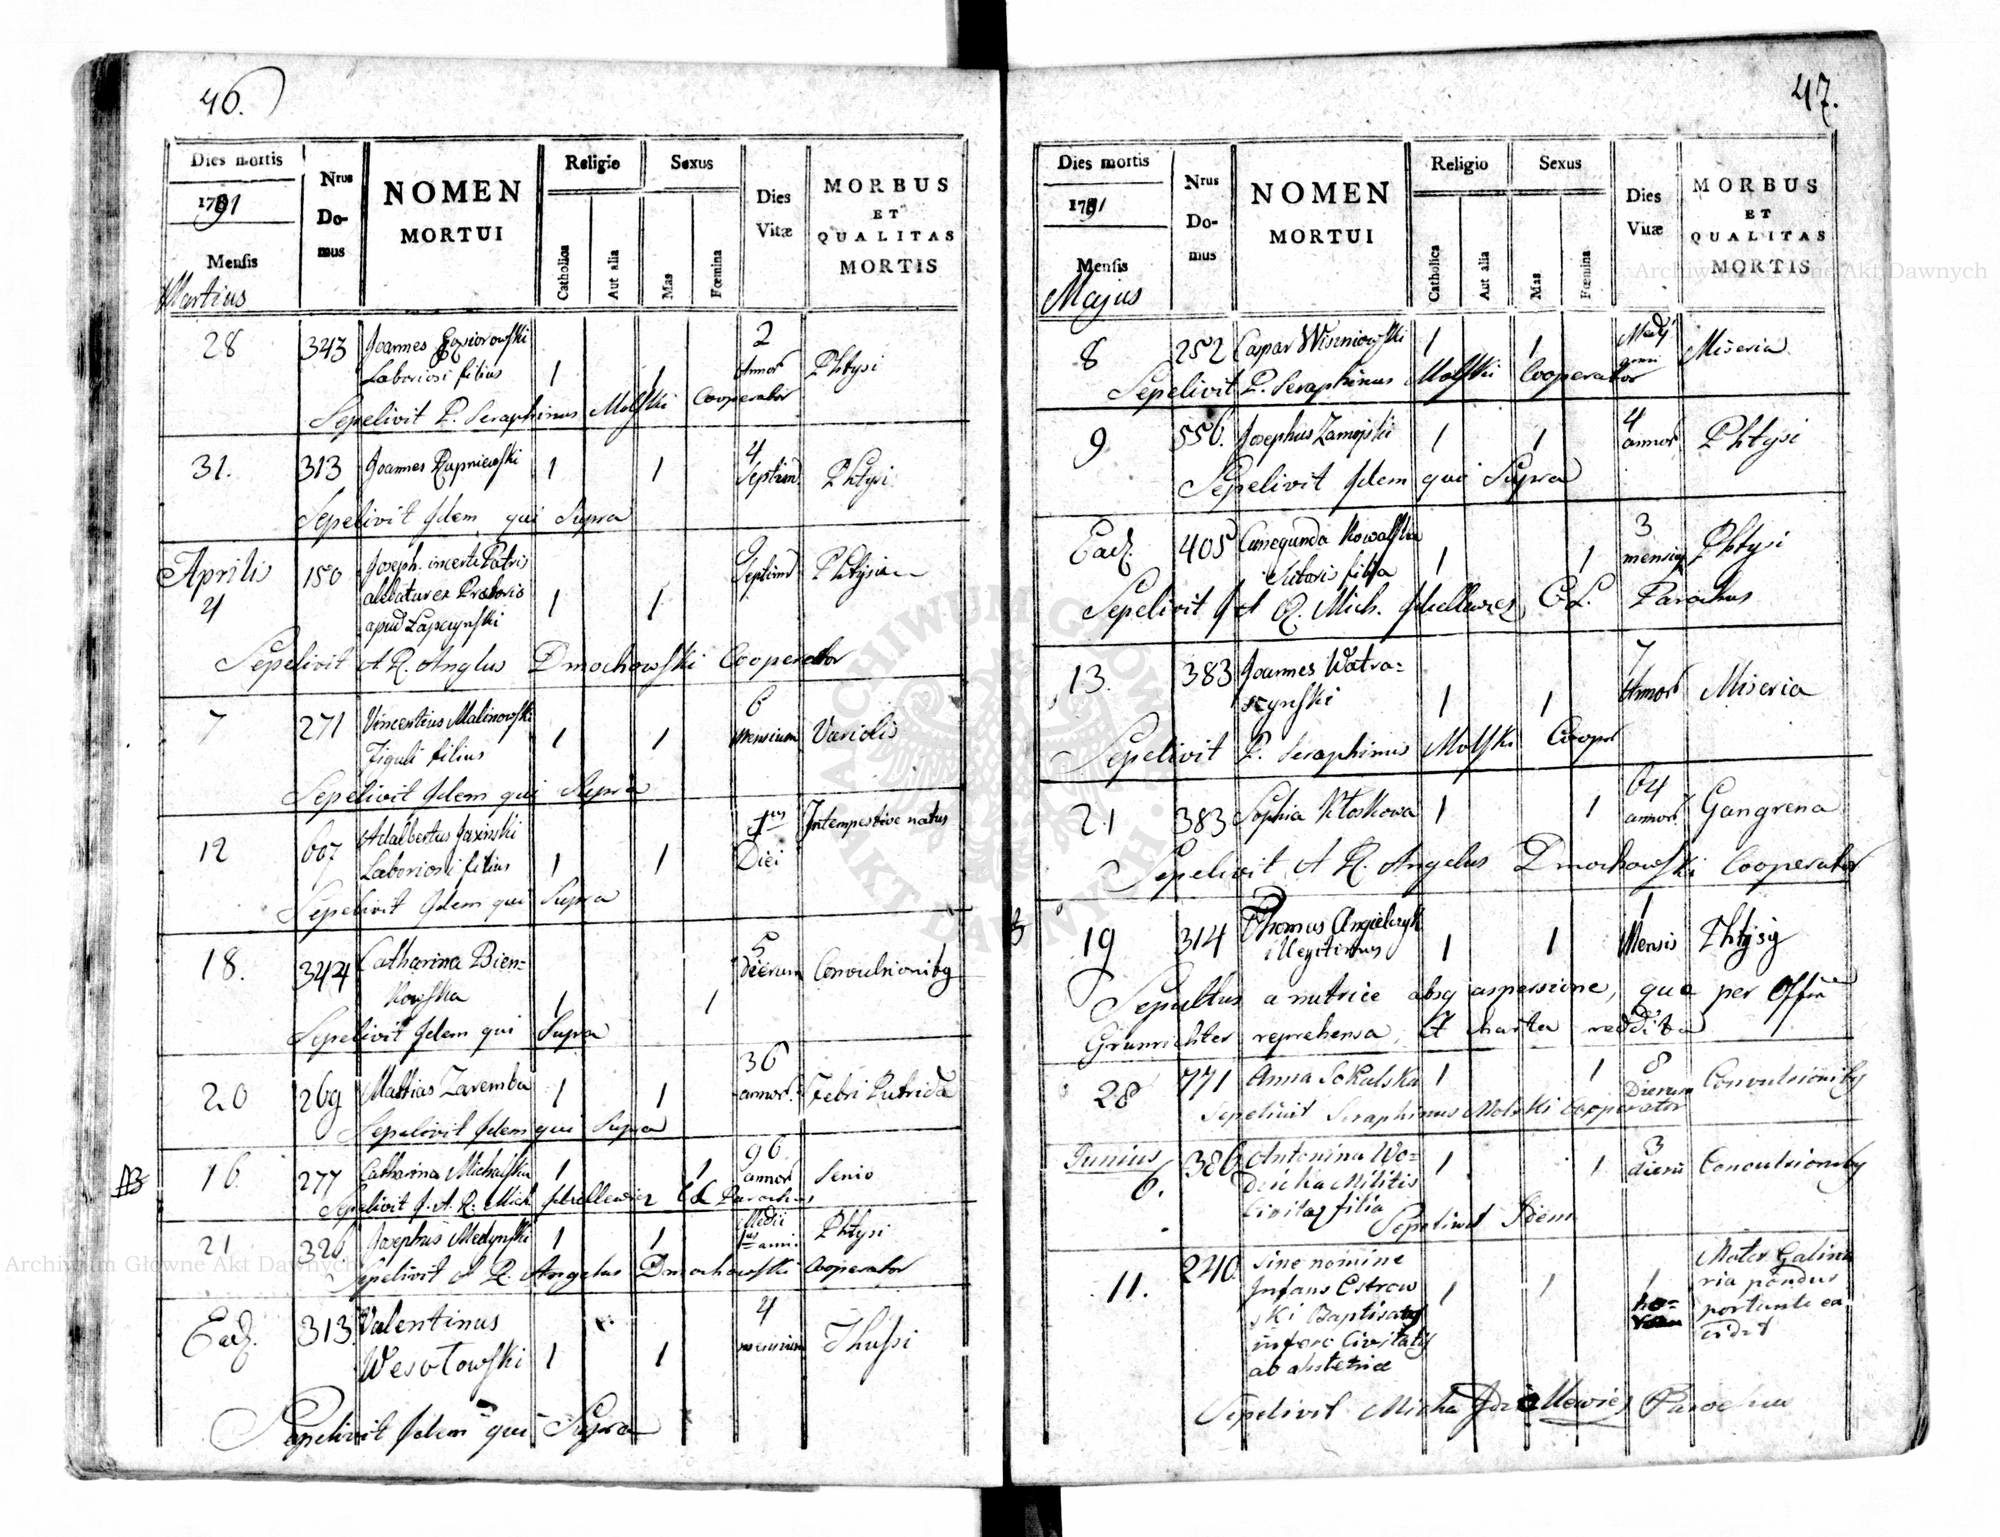 46.
Dies mortis
1791
Mensis
Martius
Nrus Do-mus
NOMEN
MORTUI
Religio
Catholica
Aut alia
Sexus
Mas
Fœmina
Dies
Vitæ
MORBUS
ET
QUALITAS
MORTIS
28 343 Joannes Gąsiorowski 2
Laboriosi filius 1 1 Annor Phtysi
Sepelivit P. Seraphinus Molski Cooperator
31. 313 Joannes Rupniewski 1 1 4 Septim Phtysi
Sepelivit Idem qui Supra
Aprilis 150 Joseph. incerti Patris 9 Septim
4 allatur ex Prætoris 1 1
apud Łapczynski
Sepelivit A R. Anglus Dmochowski Cooperator
7 271 Vincentius Malinowski 6
Figuli filius 1 1 mensium Variolis
Sepelivit Idem qui Supra
12 607 Adalbertus Jaxinski 1us Intempestive natus
Laboriosi filius 1 1 Diei
Sepelivit Idem qui Supra
18. 344 Catharina Bien= 5 dierum Convulsionibq
kowska 1 1
Sepelivit Idem qui Supra
36
20 269 Mattias Zaremba 1 1 annor. Febri Putrida
Sepelivit Idem qui Supra
96
NB 16 277 Catharina Michalska 1 1 annor Senio
Sepelivit J. A. R. Mich. Parochus
21 326 Josephus Medynski 1 1 Medii 1us anni Phtysi
Sepelivit A R. Angelus Dmochowski Cooperator
Ead. 313 Valentinus 4
Wesołowski 1 1 mensium Thussi
Sepelivit Idem qui Supra
47.
Dies mortis
1791
Mensis
Majus
Nrus Do-mus
NOMEN
MORTUI
Religio
Catholica
Aut alia
Sexus
Mas
Fœmina
Dies
Vitæ
MORBUS
ET
QUALITAS
MORTIS
8 252 Caspar Wiszniowski 1 1 Medy anni Miseria
Sepelivit P. Seraphinus Molski Cooperator
9 556. Josephus Zamojski 1 1 4 annor Phtysi
Sepelivit Idem qui Supra
Ead. 405 Cunegunda Kowalska 3
Sutoris filia 1 1 mensium Phtysi
Sepelivit J A R. Mich. Parochus
13. 383 Joannes Watra= 7
szynski 1 1 Annor Miseria
Sepelivit P. Seraphinus Molski Coopr
21 383 Sophia Kłoskowa 1 1 64 annor Gangrena
Sepelivit A R. Angelus Dmochowski Cooperator
19 314 Thomas Angielczyk 1
Illegitimus 1 1 Mensis Phtysy
Sepultus a nutrice absq aspersione, qua per Offm
Grunrichter reprehensa, Et charta reddita
28 771 Anna Sokulska 1 1 8 Dierum Convulsionibq
Sepelivit Seraphinus Molski Cooperator
Junius 386 Antonina Wo= 3
6. Militis 1 1 dierū Convulsionibq
Civitatq filia
Sepelivit Idem
11. 240. Sine nomine Mater
Infans Ostrow 1 1 1 ria pondus
ski Baptisatq ho= portante ca
in foro Civitatq cidit
ab obstetrice
Sepelivit Parochus
Archiwum Główne Akt Dawnych
Archiwum Główne Akt Dawnych
ARCHIWUM GŁÓWNE AKT DAWNYCH